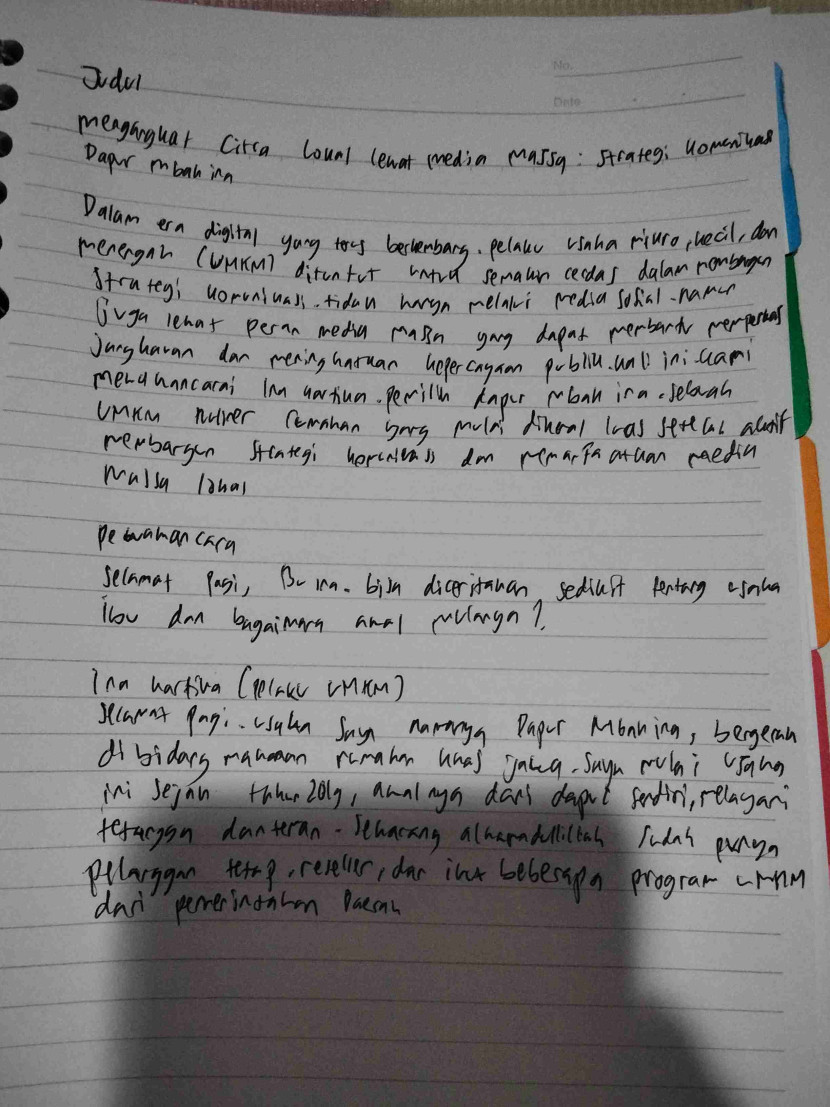 No.
Date
Judul
mengangkat Citra Lokal lewat media massa : strategi komunikasi
Dapur mbah ina
Dalam era digital yang terus berkembang. pelaku usaha mikro, kecil, dan
menengah (UMKM) dituntut untuk semakin cerdas dalam membangun
strategi komunikasi. tidak hanya melalui media sosial. namun
juga lewat peran media massa yang dapat membantu memperluas
jangkauan dan meningkatkan kepercayaan publik. kali ini kami
mewawancarai Ina kartika. pemilik dapur mbah ina. sebuah
UMKM kuliner rumahan yang mulai dikenal luas setelah aktif
membangun strategi komunikasi dan pemanfaatkan media
massa lokal
pewawancara
Selamat pagi, Bu ina. bisa diceritakan sedikit tentang usaha
ibu dan bagaimana awal mulanya?
Ina kartika (pelaku UMKM)
Selamat pagi. usaha saya namanya Dapur Mbah ina, bergerak
di bidang makanan rumahan khas jawa. saya mulai usaha
ini sejak tahun 2019, awalnya dari dapur sendiri, melayani
tetangga dan teman. Sekarang alhamdulillah sudah punya
pelanggan tetap, reseller, dan ikut beberapa program UMKM
dari pemerintahan Daerah